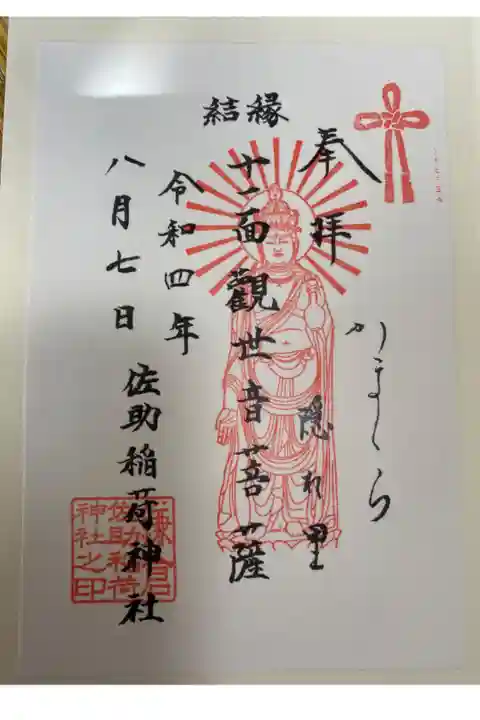 結縁
奉拝
かまくら
隠れ里
十一面観世音菩薩
令和四年
八月七日
佐助稲荷神社
鎌倉
佐助稲荷
神社之印